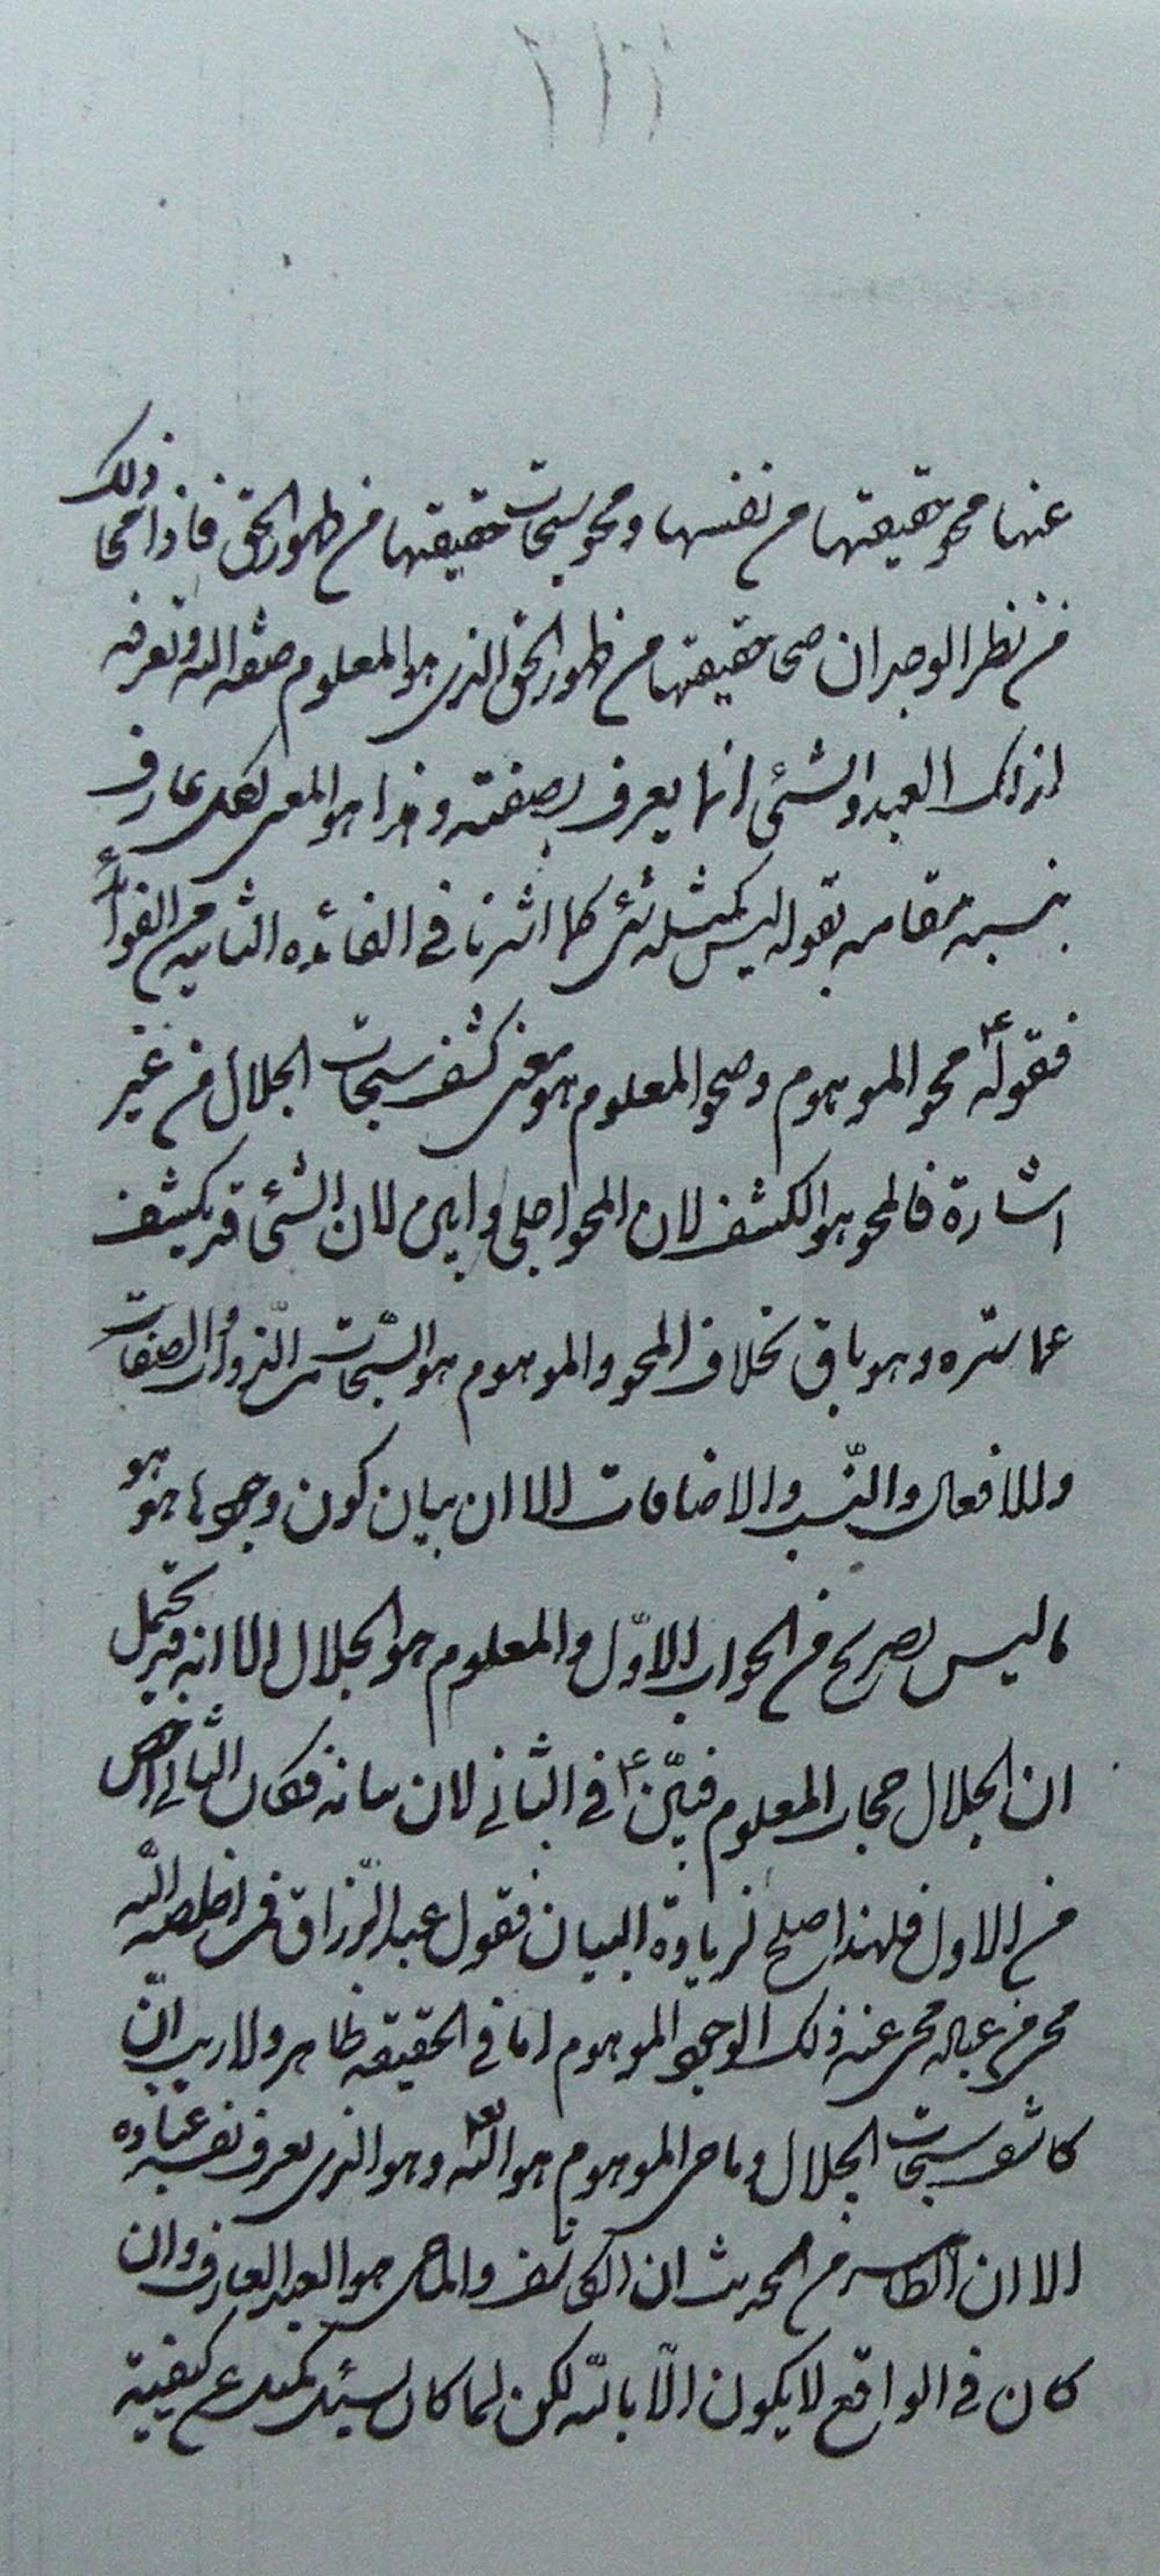 عنها محو حقيقتها من نفسها ومحو سبحات حقيقتها من ظهور الحق فاذا محا ذلك
من نظر الوجدان صحا حقيقتها من ظهور الحق الذي هو المعلوم صفة الله وتعرفه
لذلك العبد والشئ انما يعرف بصفته وهذا هو المعنى لكل عارف
بنسبة مقامه بقوله ليس كمثله شئ كما اشرنا في الفائده الثانيه من الفوائد
فقوله ع محو الموهوم وصحو المعلوم هو معنى كشف سبحات الجلال من غير
اشارة فالمحو هو الكشف لان المحو اجلى وابين لان الشئ قد يكشف
عما ستره وهو باق بخلاف المحو والموهوم هو السبحات من الذوات والصفات
والافعال والنسب والاضافات الا ان بيان كون وجودها موهو
ما ليس بصريح من الجواب الاول والمعلوم هو الجلال الا انه قد يحتمل
ان الجلال حجاب المعلوم فبيّن ع في الثاني لان بيانه فكان الثاني اخص
من الاول فلهذا صلح لزيادة البيان فقول عبد الرزاق فمن اخلصه الله
من عباده محى عنه ذلك الوجود الموهوم اما في الحقيقه ظاهر ولا ريب انّ
كاشف سبحات الجلال وماحى الموهوم هو الله تع وهو الذي يعرف نفسه عباده
الا ان الظاهر من الحديث ان الكاشف والماحى هو العبد العارف وان
كان في الواقع لا يكون الّا بالله لكن لما كان سئل كميل عن كيفية